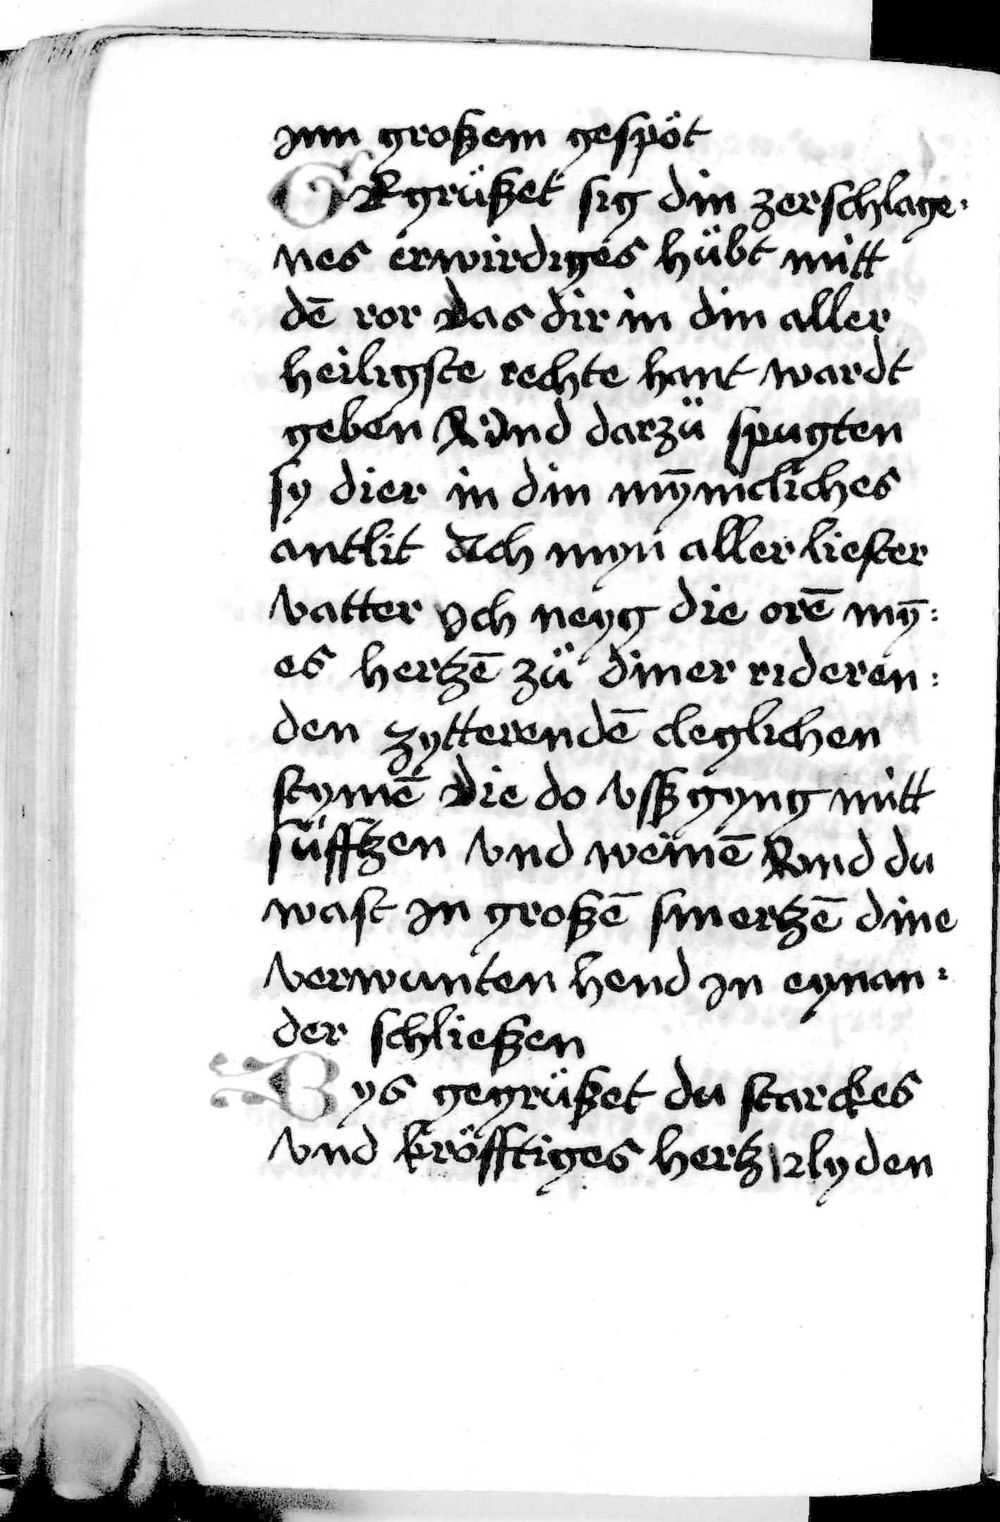 inn großem gespöt
GEgrüßet sig din zerschlage-
nes erwirdiges hübt mitt
dē ror das dir in din aller
heiligste rechte hant wardt
geben Vnd darzü spugten
sy dier in din mȳnicliches
antlit Ach myn aller liester
vatter Jch neyg die orē mȳ:
es hertzē zü diner rideren:
den zytterendē cleglichen
stymē die do vßgyng mitt
süfftzen vnd weinē Vnd du
wast in großē smertzē dine
verwunten hend in eynan-
der schließen
Bys gegrüßet du starckes
vnd kröfftiges hertz lyden